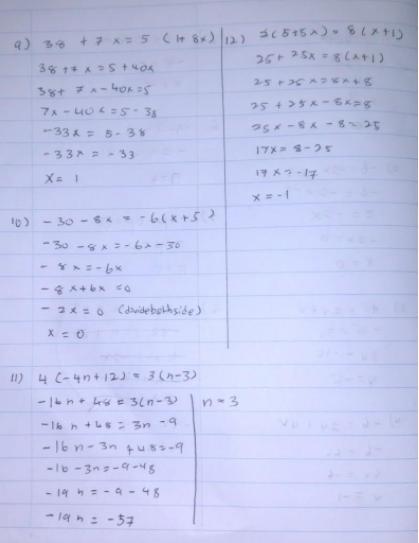 9) 38 + 7x = 5 (1+8x)
38+7x = 5+40x
38+ 7x-40x=5
7x-40x=5-38
-33x = 5-38
-33x = -33
x = 1
10) -30 - 8x = -6(x+5)
-30 -8x = -6x -30
- 8x = -6x
- 8x+6x =0
- 2x = 0 (dividebothside)
x = 0
11) 4 (-4n+12) = 3(n-3)
-16n + 48 = 3(n-3)
-16n + 48 = 3n -9
-16n - 3n + 48 = -9
-16 - 3n = -9-48
-19n = -9 - 48
-19n = -57
n = 3
12) 5(5+5x) = 8(x+1)
25+ 25x = 8(x+1)
25 + 25x = 8x+8
25 + 25x - 8x=8
25x - 8x - 8 = 25
17x = 8-25
17x = -17
x = -1